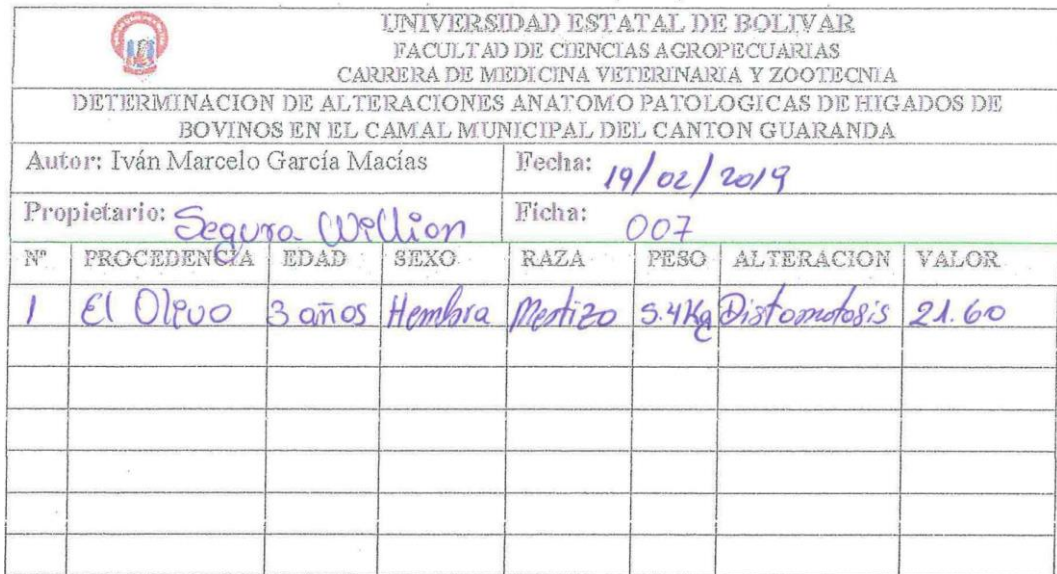 UNIVERSIDAD ESTATAL DE BOLIVAR
FACULTAD DE CIENCIAS AGROPECUARIAS
CARRERA DE MEDICINA VETERINARIA Y ZOOTECNIA
DETERMINACION DE ALTERACIONES ANATOMO PATOLOGICAS DE HIGADOS DE
BOVINOS EN EL CAMAL MUNICIPAL DEL CANTON GUARANDA
Autor: Iván Marcelo García Macías Fecha: 19/02/2019
Propietario: Segura Willion Ficha: 007
Nº PROCEDENCIA EDAD SEXO RAZA PESO ALTERACION VALOR
1 El Olivo 3 años Hembra Mestizo 5.4Kg Distomatosis 21.60